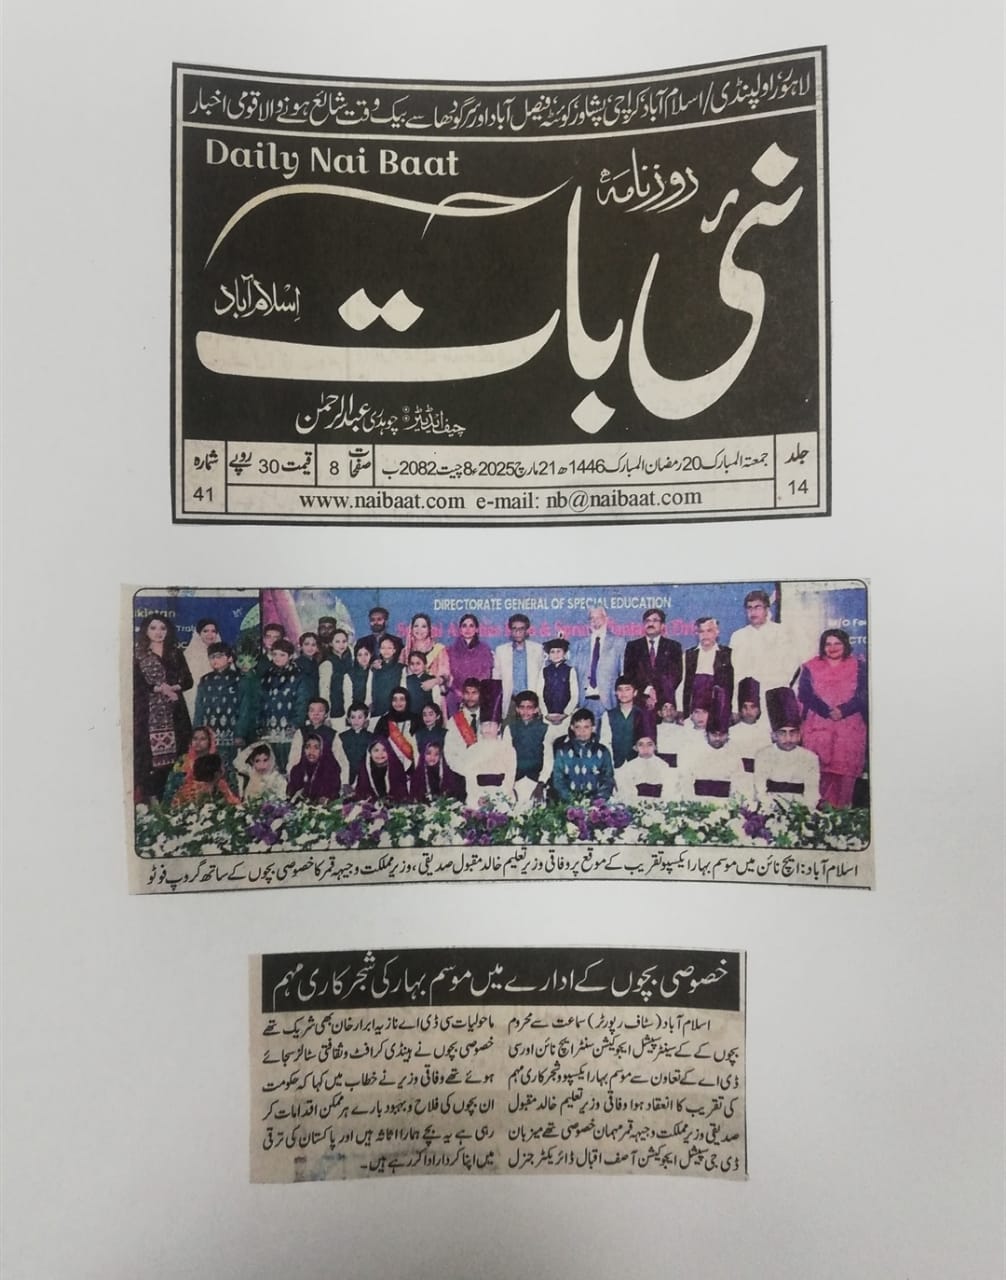 لاہور، راولپنڈی/اسلام آباد، کراچی، پشاور، کوئٹہ، فیصل آباد اور سرگودھا سے بیک وقت شائع ہونے والا قومی اخبار
Daily Nai Baat
روزنامہ
نئی بات
اسلام آباد
چیف ایڈیٹر: چوہدری عبدالرحمٰن
جلد 14
جمعتہ المبارک 20 رمضان المبارک 1446ھ 21 مارچ 2025ء 8 چیت 2082 ب
صفحات 8
قیمت 30 روپے
شمارہ 41
www.naibaat.com e-mail: nb@naibaat.com
DIRECTORATE GENERAL OF SPECIAL EDUCATION
اسلام آباد: ایچ نائن میں موسم بہار ایکسپو تقریب کے موقع پر وفاقی وزیر تعلیم خالد مقبول صدیقی، وزیر مملکت وجیہہ قمر کا خصوصی بچوں کے ساتھ گروپ فوٹو
خصوصی بچوں کے ادارے میں موسم بہار کی شجر کاری مہم
اسلام آباد (سٹاف رپورٹر) سماعت سے محروم
بچوں کے کے سینٹر سپیشل ایجوکیشن سنٹر ایچ نائن اور سی
ڈی اے کے تعاون سے موسم بہار ایکسپو و شجر کاری مہم
کی تقریب کا انعقاد ہوا وفاقی وزیر تعلیم خالد مقبول
صدیقی وزیر مملکت وجیہہ قمر مہمان خصوصی تھے میزبان
ڈی جی سپیشل ایجوکیشن آصف اقبال ڈائریکٹر جنرل
ماحولیات سی ڈی اے نازیہ ابرار خان بھی شریک تھے
خصوصی بچوں نے ہینڈی کرافٹ و ثقافتی سٹالز سجائے
ہوئے تھے وفاقی وزیر نے خطاب میں کہا کہ حکومت
ان بچوں کی فلاح و بہبود بارے ہر ممکن اقدامات کر
رہی ہے یہ بچے ہمارا اثاثہ ہیں اور پاکستان کی ترقی
میں اپنا کردار ادا کر رہے ہیں۔